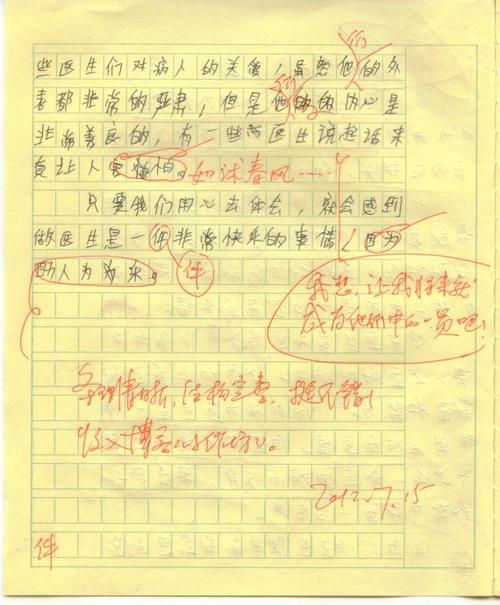 些医生们对病人的关爱，虽然他的外
们
表都非常的严肃，但是他的的内心是
们
非常善良的，有一些医生说起话来
真让人
如沐春风……
只要我们用心去体会，就会感到
做医生是一件非常快乐的事情，因为
助人为为乐。
件
我想，让我将来就
成为他们中的一员吧！
条理清晰，结构完整，挺不错！
收入博客
2012.7.15
件